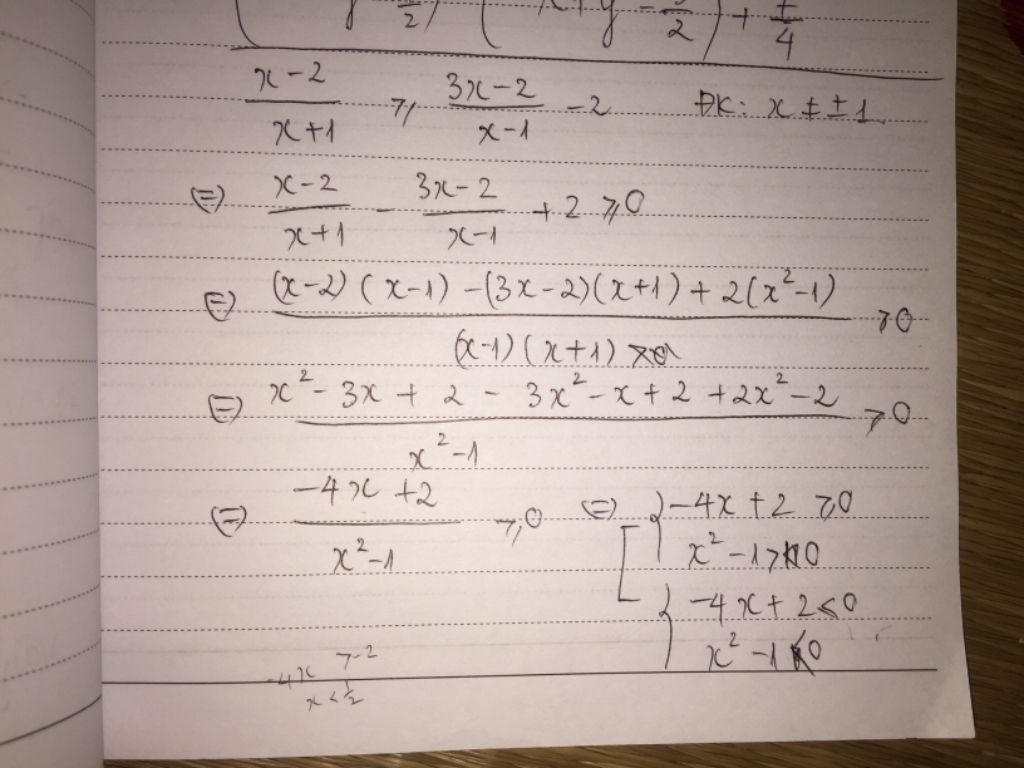 y - /2) ( x+y - 3/2) + 7/4
(x-2)/(x+1) ≥ (3x-2)/(x-1) -2 ĐK: x ≠ ±1
(=) (x-2)/(x+1) - (3x-2)/(x-1) + 2 ≥ 0
(=) ((x-2)(x-1) - (3x-2)(x+1) + 2(x²-1))/((x-1)(x+1)) ≥ 0
(=) (x² - 3x + 2 - 3x² - x + 2 + 2x² - 2)/(x²-1) ≥ 0
(=) (-4x + 2)/(x²-1) ≥ 0 (=) [ { -4x + 2 ≥ 0
x² - 1 > 0
{ -4x + 2 ≤ 0
x² - 1 < 0
-4x ≥ -2
x < 1/2